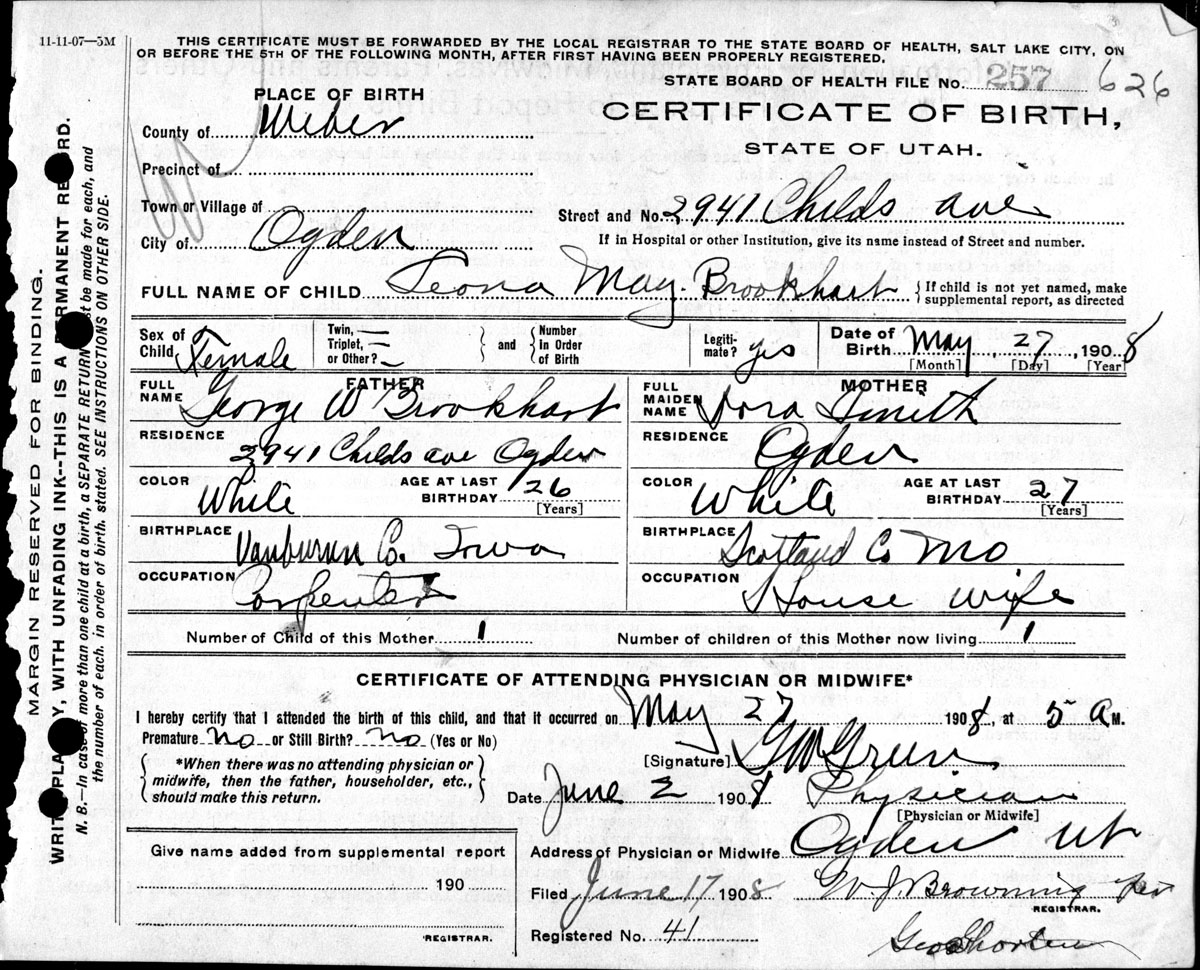 11-11-07—5M
THIS CERTIFICATE MUST BE FORWARDED BY THE LOCAL REGISTRAR TO THE STATE BOARD OF HEALTH, SALT LAKE CITY, ON
OR BEFORE THE 5TH OF THE FOLLOWING MONTH, AFTER FIRST HAVING BEEN PROPERLY REGISTERED.
STATE BOARD OF HEALTH FILE No. 257 626
PLACE OF BIRTH
CERTIFICATE OF BIRTH,
STATE OF UTAH.
County of Weber
Precinct of
Town or Village of
Street and No. 2941 Childs ave
City of Ogden
If in Hospital or other Institution, give its name instead of Street and number.
FULL NAME OF CHILD Leona May Brookhart {If child is not yet named, make
supplemental report, as directed
Sex of Child Female
Twin, Triplet, or Other?
and
Number in Order of Birth
Legiti-mate? yes
Date of Birth May, 27, 1908
[Month] [Day] [Year]
FATHER
FULL NAME George W Brookhart
MOTHER
FULL MAIDEN NAME Dora Smith
RESIDENCE 2941 Childs ave Ogden
RESIDENCE Ogden
COLOR White AGE AT LAST BIRTHDAY 26 [Years]
COLOR White AGE AT LAST BIRTHDAY 27 [Years]
BIRTHPLACE Vanburen Co. Iowa
BIRTHPLACE Scotland Co Mo
OCCUPATION Carpenter
OCCUPATION House wife
Number of Child of this Mother 1 Number of children of this Mother now living 1
CERTIFICATE OF ATTENDING PHYSICIAN OR MIDWIFE*
I hereby certify that I attended the birth of this child, and that it occurred on May 27 1908, at 5 A M.
Premature No or Still Birth? No (Yes or No)
[Signature] GW Green
*When there was no attending physician or
midwife, then the father, householder, etc.,
should make this return.
Date June 2 1908 Physician
[Physician or Midwife]
Give name added from supplemental report
190
REGISTRAR.
Address of Physician or Midwife Ogden Ut
Filed June 17, 1908 W. J. Browning
REGISTRAR.
Registered No. 41 Geo Shorten
MARGIN RESERVED FOR BINDING.
WRITE PLAINLY, WITH UNFADING INK--THIS IS A PERMANENT RECORD.
N. B.—In case of more than one child at a birth, a SEPARATE RETURN must be made for each, and
the number of each, in order of birth, stated. SEE INSTRUCTIONS ON OTHER SIDE.